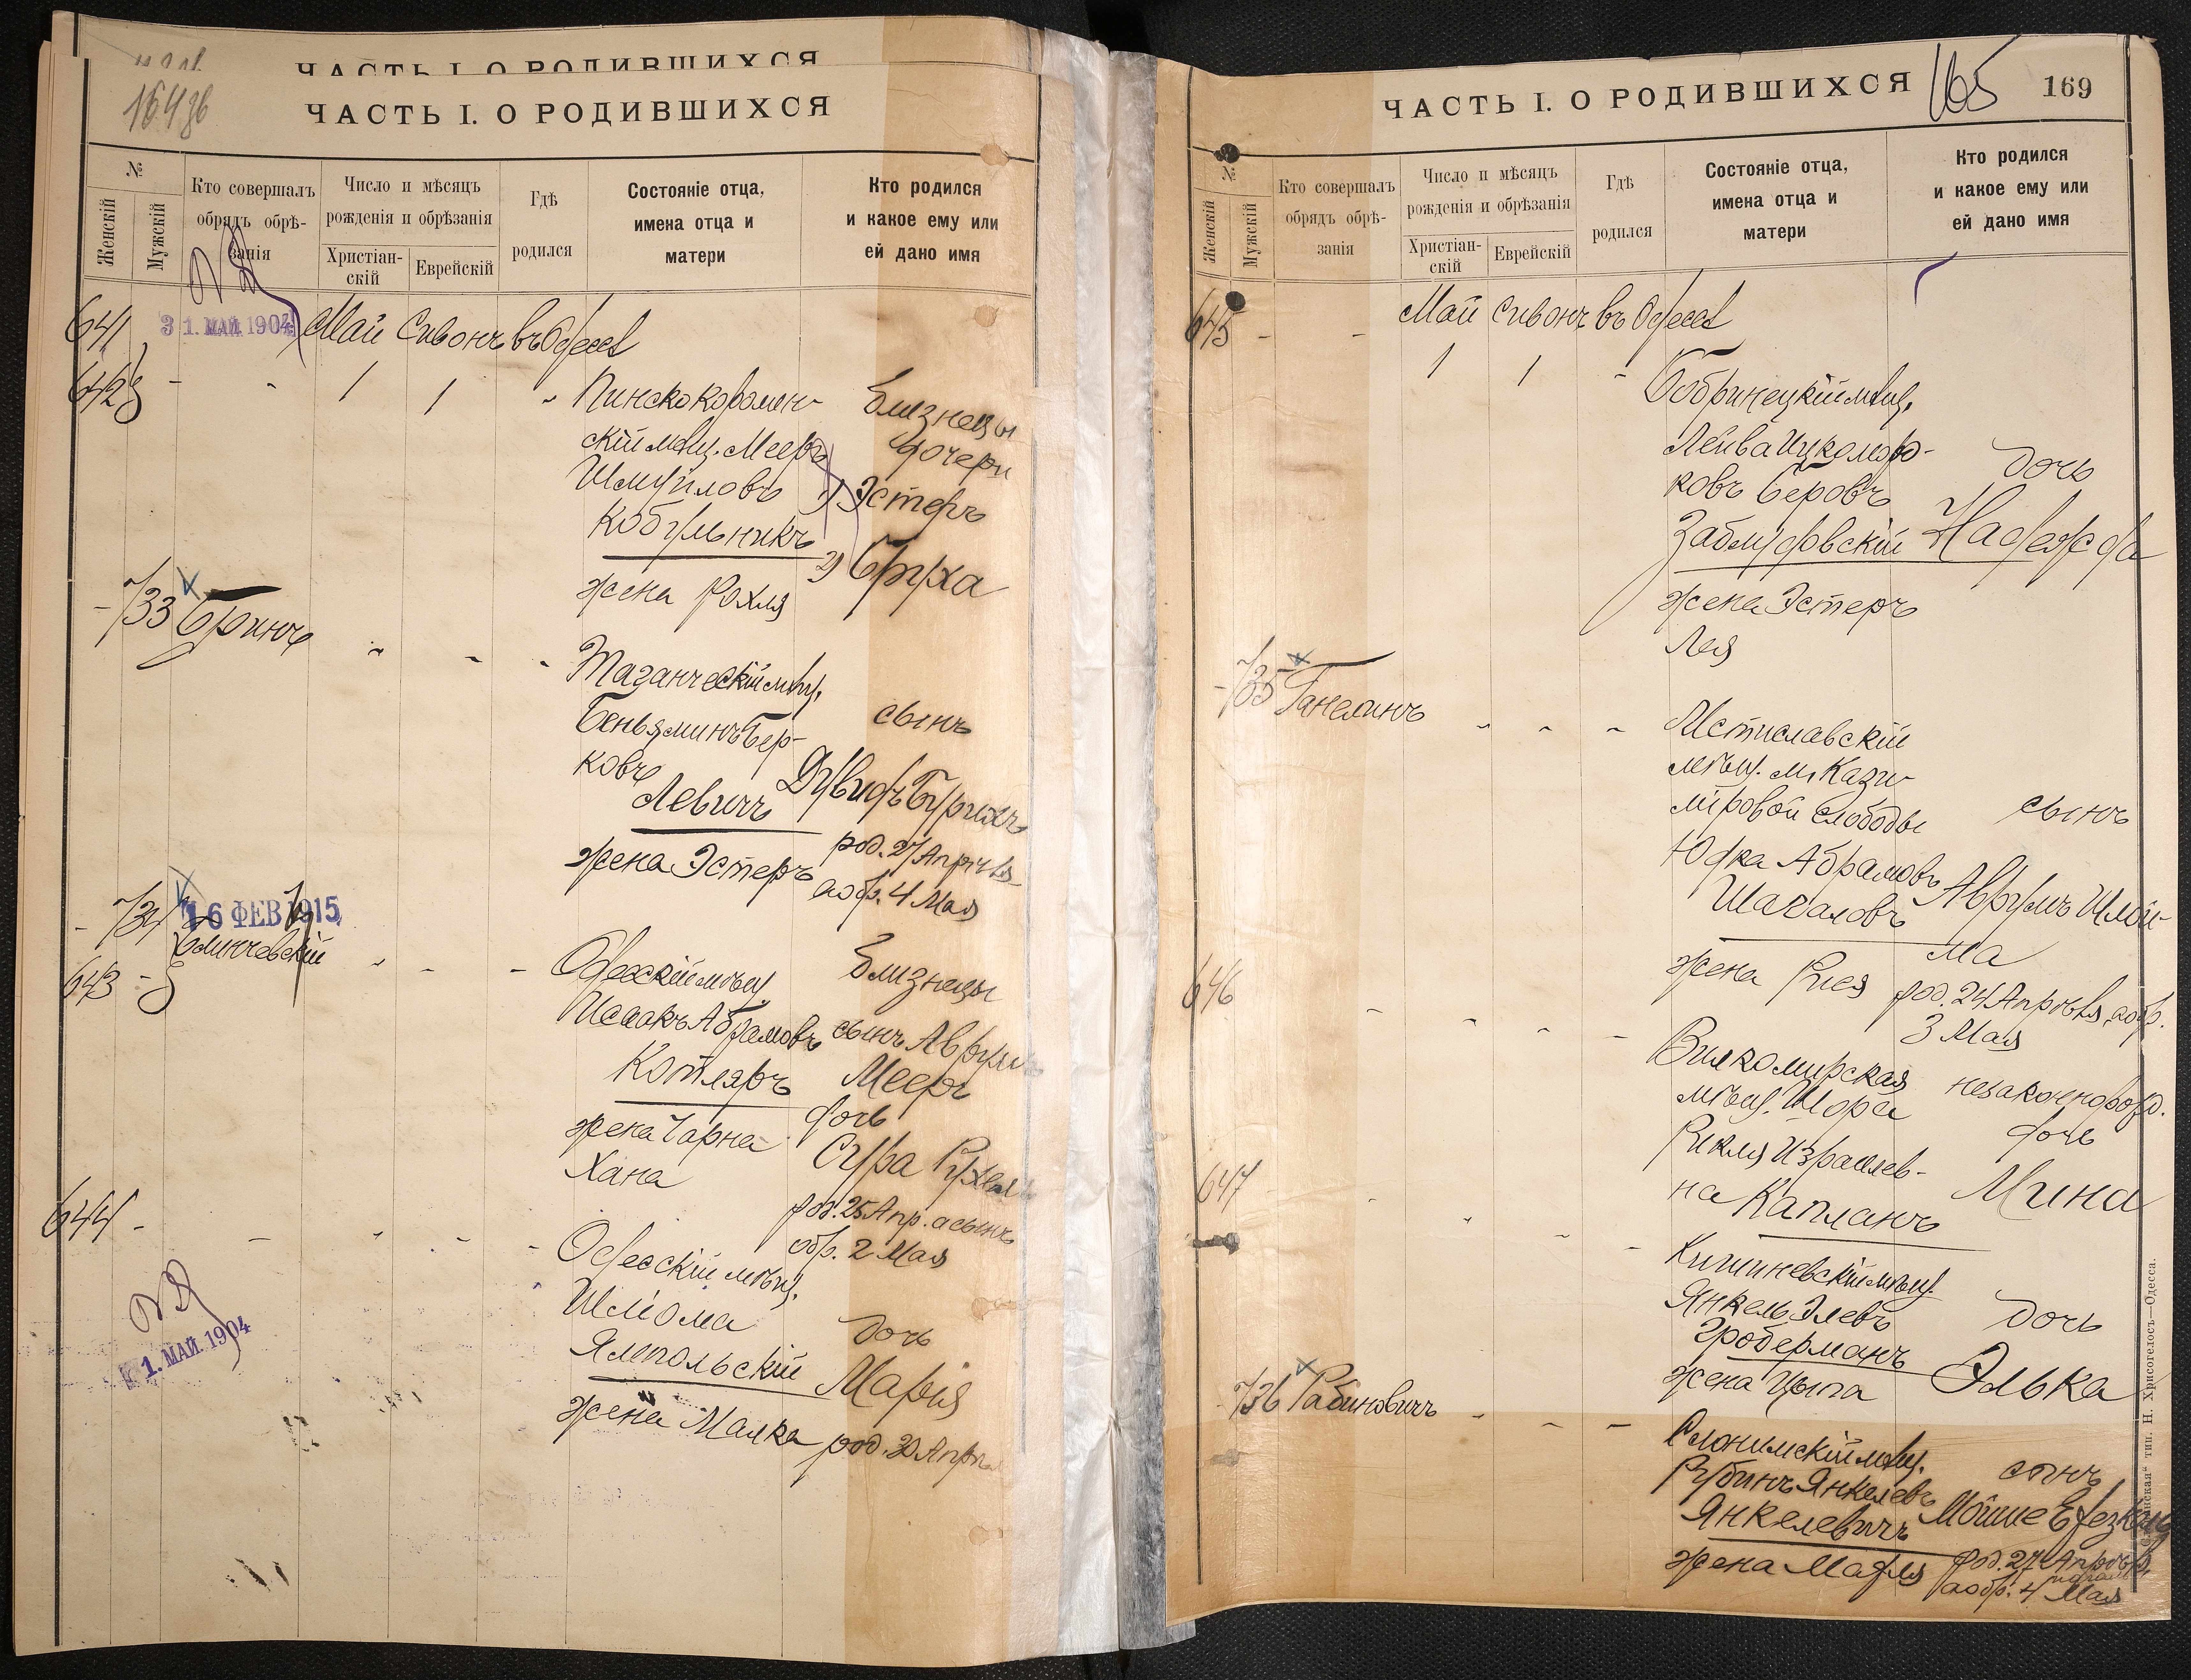 ЧАСТЬ I. О РОДИВШИХСЯ
164 об
ЧАСТЬ I. О РОДИВШИХСЯ
№
Женскій
Мужскій
Кто совершалъ
обрядъ обрѣ-
занія
Число и мѣсяцъ
рожденія и обрѣзанія
Христіан-
скій
Еврейскій
Гдѣ
родился
Состояніе отца,
имена отца и
матери
Кто родился
и какое ему или
ей дано имя
641
31. МАЙ 1904
Май Сивонъ въ Одессѣ
642
1 1
Пинскокоролен-
скій мѣщ. Мееръ
Шмуиловъ
Кобыльникъ
жена Рохля
Близнецы
дочери
1) Эстеръ
2) Бруха
733 Бринъ
Беньяминъ Бер-
ковъ
Левичъ
жена Эстеръ
сынъ
Дувидъ Бурихъ
род. 27 Апрѣля
а обр. 4 Мая
734
16 ФЕВ 1915
643
Одесскій мѣщ.
Исаакъ Абрамовъ
Котляръ
жена Чарна
Хана
Близнецы
сынъ Аврумъ
Мееръ
дочь
Сура Рухель
род. 25 Апр. а сынъ
обр. 2 Мая
644
1. МАЙ 1904
Одесскій мѣщ.
Шлiома
Ямпольскій
жена Малка
дочь
Марія
род. 30 Апрѣля
ЧАСТЬ I. О РОДИВШИХСЯ
165
169
№
Женскій
Мужскій
Кто совершалъ
обрядъ обрѣ-
занія
Число и мѣсяцъ
рожденія и обрѣзанія
Христіан-
скій
Еврейскій
Гдѣ
родился
Состояніе отца,
имена отца и
матери
Кто родился
и какое ему или
ей дано имя
645
Май Сивонъ въ Одессѣ
1 1
Бобринецкій мѣщ.
Лейва Ицко
ковъ Беровъ
Заблудовскій
жена Эстеръ
Лея
дочь
Надежда
735 Ганелинъ
Мстиславскій
мѣщ. м. Кази-
міровой Слободы
Юдка Абрамовъ
Шагаловъ
жена Рися
сынъ
Аврумъ Шлiо-
ма
род. 24 Апрѣля, а обр.
3 Мая
646
Вилкомирская
мѣщ. Шора
Рикля Израилев-
на Капланъ
незаконнорожд.
дочь
Мина
647
Кишиневскій мѣщ.
Янкель Элевъ
Гродерманъ
жена Цыпа
дочь
Элька
736 Рабиновичъ
Слонимскій мѣщ.
Рубинъ Янкелевъ
Янкелевичъ
жена Маля
сынъ
Мойше
род. 27 Апрѣля,
а обр. 4 Мая
тип. Н. Хрисогелосъ—Одесса.